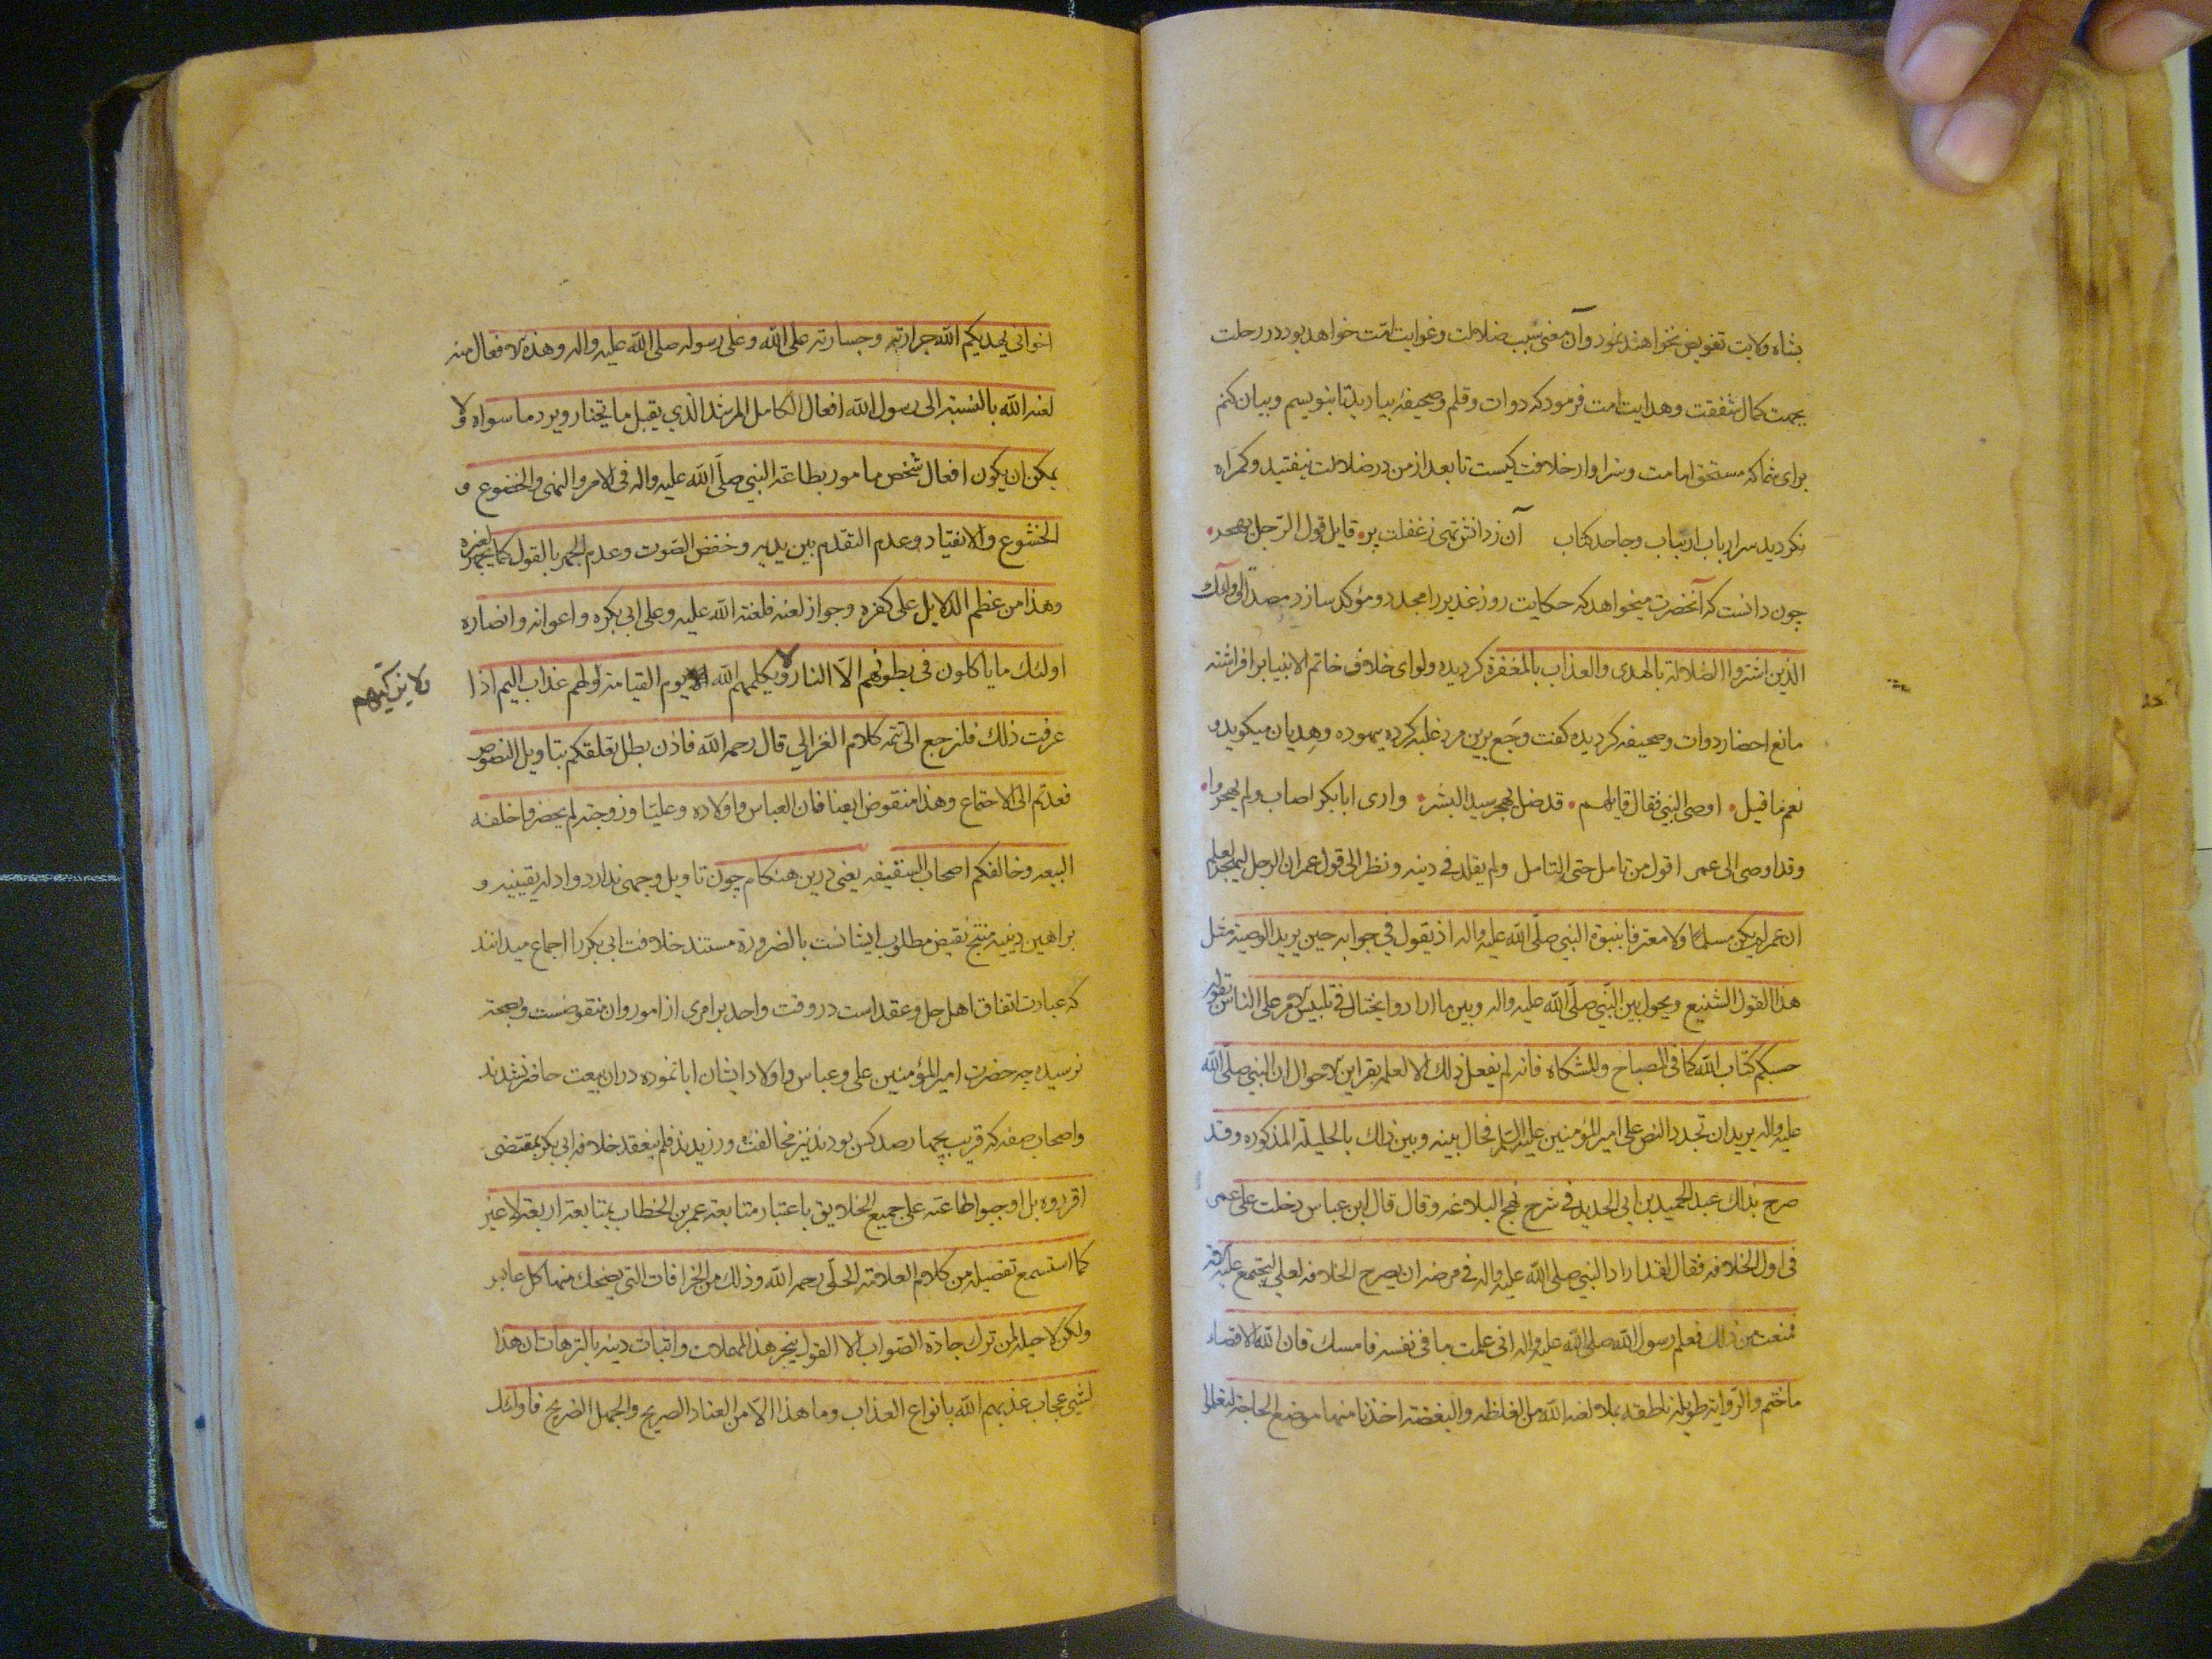 پناه ولایت تفویض نخواهند نمود وآن معنی سبب ضلالت وغوایت امّت خواهد بود در رحلت
بجهت کمال شفقت وهدایت امت فرمود که دوات وقلم وصحیفه بیارید تا بنویسم وبیان کنم
برای شما که مستحق امامت وسزاوار خلافت کیست تا بعد از من در ضلالت نیفتید وکمراه
نکردید سر ارباب ارتیاب وجاحد کتاب آن ز دانش تهی ز غفلت پر قایل قول الرّجل یهجر
چون دانست که آنحضرت میخواهد که حکایت روز غدیر را مجدد ومؤکد سازد مصداق اولئک
الّذین اشتروا الضلالة بالهدی والعذاب بالمغفرة کردیده ولوای خلاف خاتم الانبیا بر افراشته
مانع احضار دوات وصحیفه کردیده کفت وجع برین مرد غلبه کرده بیهوده وهذیان میکوید و
نعم ما قیل اوصی النبی فقال قایلهم قد ضل یهجر سید البشر واری ابابکر اصاب ولم یهجروا
وقد اوصی الی عمر اقول من تامل حق التامل ولم یقلد فی دینه ونظر الی قول عمر ان الرجل لیهجر لعلم
ان عمر لم یکن مسلما ولا معترفا بنبوة النبی صلّی الله علیه واله اذ یقول فی جوابه حین یرید الوصیة مثل
هذا القول الشنیع ویحول بین النّبی صلّی الله علیه واله وبین ما اراد ویختال فی تلبیس الامر علی الناس بقوله
حسبکم کتاب الله کما فی المصباح والمشکاة فانه لم یفعل ذلک الا لعلمه بقراین الاحوال ان النبی صلّی الله
علیه واله یرید ان تجدد النص علی امیر المؤمنین علیه السّلم فحال بینه وبین ذلک بالحیلة المذکوره وقد
صرح بذلک عبد الحمید بن ابی الحدید فی شرح نهج البلاغه وقال قال ابن عباس دخلت علی عمر
فی اول الخلافه فقال لقد اراد النبی صلی الله علیه واله فی مرضه ان یصرح الخلافه لعلی لیجتمع علیه الامة
فمنعت من ذلک فعلم رسول الله صلی الله علیه واله انی علمت ما فی نفسه فامسک فان الله الا قضاء
ما ختم والرّوایة طویلة ناطقة بما له لعنه الله من الغلظه والبغضة اخذنا منها موضع الحاجة لتعلموا
اخوانی یهدیکم الله جراءته وجسارته علی الله وعلی رسوله صلی الله علیه واله وهذه الافعال منه
لعنه الله بالنسبة الی رسول الله افعال الکامل المرشد الّذی یقبل ما یختار ویرد ما سواه ولا
یمکن ان یکون افعال شخص مامور بطاعة النبی صلّی الله علیه واله فی الامر والنهی والخضوع و
الخشوع والانقیاد وعدم التقدم بین یدیه وخفض الصّوت وعدم الجهر بالقول کما یجهر لغیره
وهذا من عظم الدلایل علی کفره وجواز لعنه فلعنة الله علیه وعلی ابی بکره واعوانه وانصاره
اولئک ما یاکلون فی بطونهم الّا النار ولا یکلمهم الله یوم القیامة ولهم عذاب الیم اذا
ولا یزکّیهم
عرفت ذلک فلنرجع الی تتمه کلام الغزالی قال رحمه الله فاذن بطل تعلقکم بتاویل النصوص
فعدتم الی الاجتماع وهذا منقوض ایضا فان العباس واولاده وعلیّا وزوجته لم یحضروا خلفه
البیعه وخالفکم اصحاب السقیفه یعنی درین هنکام چون تاویل وجهی ندارد وادله یقینیه و
براهین دینیه منتج نقیض مطلوب ایشانست بالضرورة مستند خلافت ابی بکر را اجماع میدانند
که عبارت اتفاق اهل حل وعقد است در وقت واحد بر امری از امور وان منقوضست وبصحة
نرسیده چه حضرت امیر المؤمنین علی وعباس واولاد ایشان ابا نموده در ان بیعت حاضر نشدند
واصحاب صفه که قریب بچهارصد کس بودند نیز مخالفت ورزیدند فلم ینعقد خلافه ابی بکر بمقتضی
اقروه بل اوجبوا طاعته علی جمیع الخلایق باعتبار متابعة عمر بن الخطاب بمتابعة اربعة لا غیر
کما استسمع تفصیله من کلام العلامة الحلّی رحمه الله وذلک من الخرافات التی یضحک منها کل عابد
ولکن لا حیله لمن ترک جادة الصّواب الا القول بنحو هذا المحلات واثبات دینه بالترهات ان هذا
لشیء عجاب عذبهم الله بانواع العذاب وما هذا الا من العناد الصریح والجهل الصّریح فاولئک